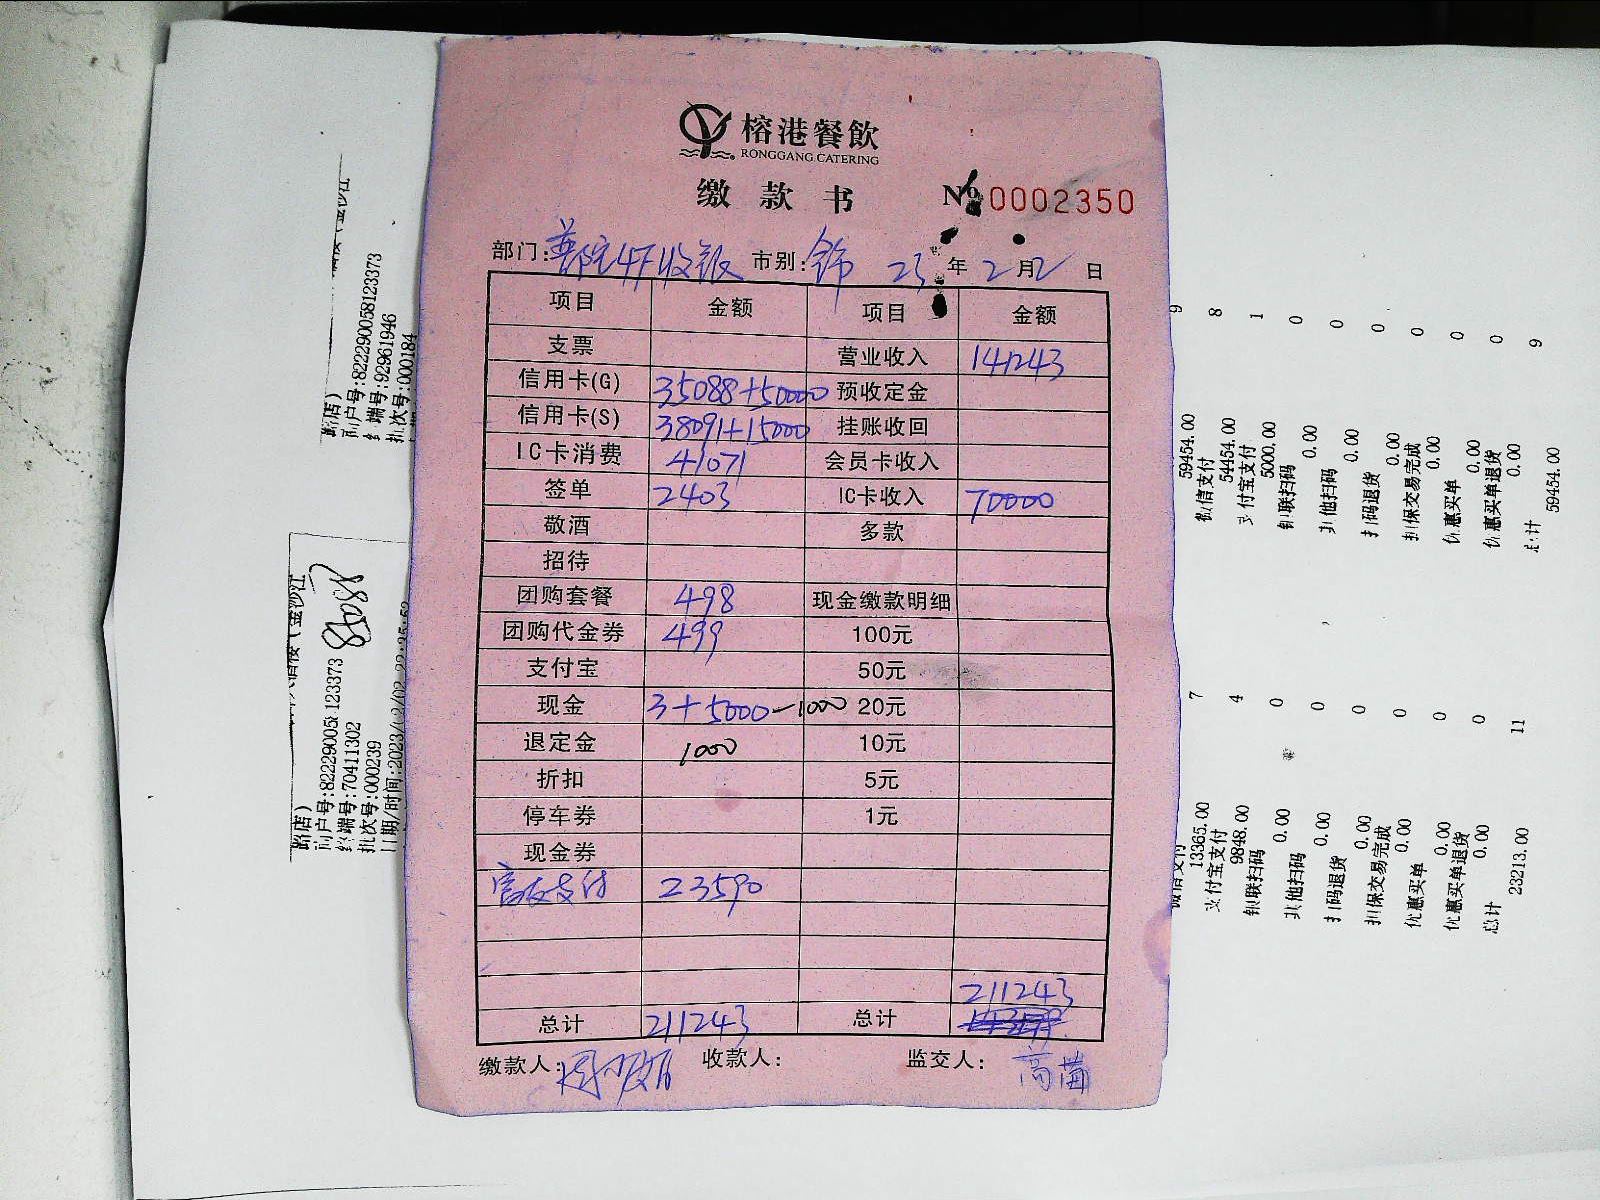 榕港餐飲
RONGGANG CATERING
缴款书 № 0002350
部门：普陀4F收银 市别：全市 23年2月2日
项目 金额 项目 金额
支票 营业收入 141243
信用卡(G) 35088+50000 预收定金
信用卡(S) 38091+15000 挂账收回
IC卡消费 41071 会员卡收入
签单 2403 IC卡收入 70000
敬酒 多款
招待
团购套餐 498 现金缴款明细
团购代金券 499 100元
支付宝 50元
现金 3+5000-1000 20元
退定金 1000 10元
折扣 5元
停车券 1元
现金券
支付 23590
211243
总计 211243 总计
缴款人： 收款人： 监交人：
路店）
商户号:822290058123373
终端号:92961946
批次号:000184
路店）
商户号:822290058123373
终端号:70411302
批次号:000239
日期/时间:2023/02/02
9
59454.00
微信支付 8
54454.00
支付宝支付 1
5000.00
银联扫码 0
0.00
其他扫码 0
0.00
扫码退货 0
0.00
担保交易完成 0
0.00
优惠买单 0
0.00
优惠买单退货 0
0.00
总计 9
59454.00
微信支付 7
13365.00
支付宝支付 4
9848.00
银联扫码 0
0.00
其他扫码 0
0.00
扫码退货 0
0.00
担保交易完成 0
0.00
优惠买单 0
0.00
优惠买单退货 0
0.00
总计 11
23213.00